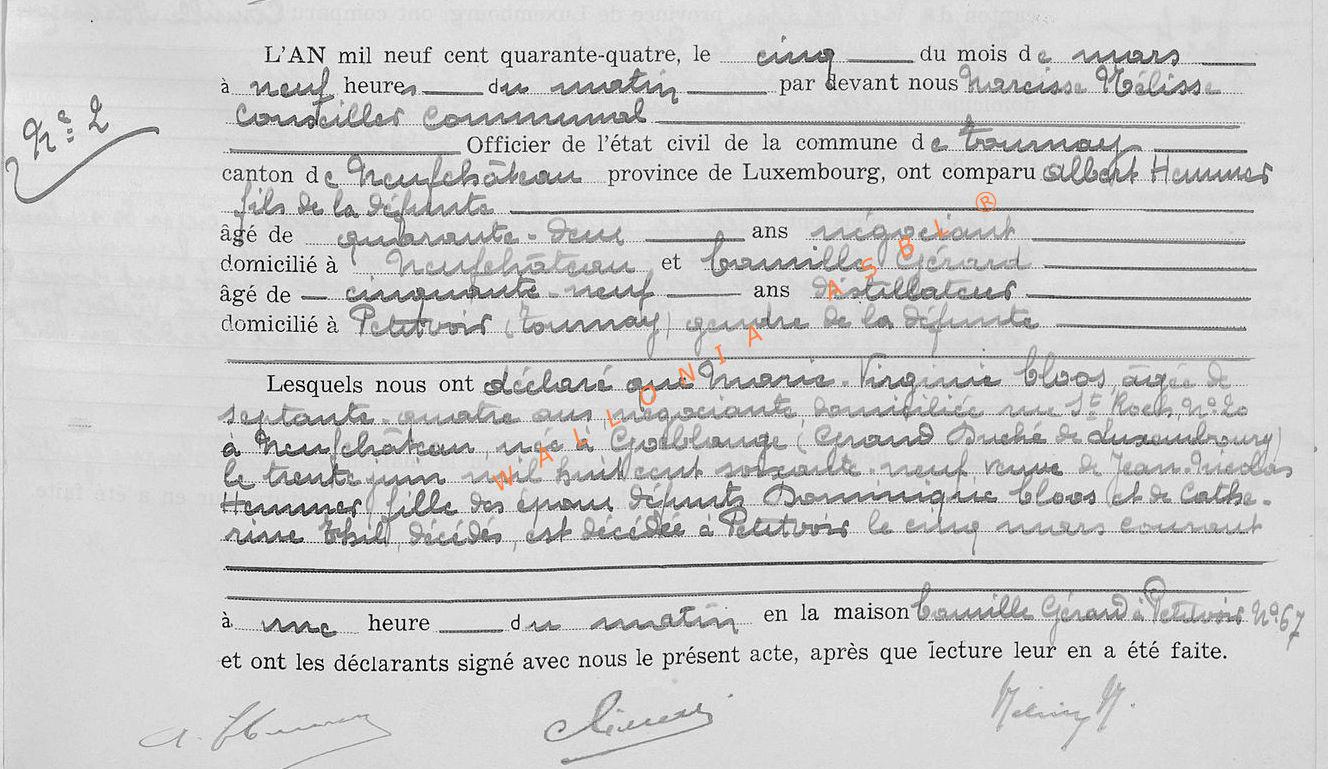 L'AN mil neuf cent quarante-quatre, le cinq du mois de mars
à neuf heures du matin par devant nous Narcisse Mélisse
Conseiller Communal
Nº 2
Officier de l'état civil de la commune de Tournay
canton de Neufchâteau province de Luxembourg, ont comparu Albert Hemmer
fils de la défunte
âgé de quarante-deux ans négociant
domicilié à Neufchâteau et Camille Gérard
âgé de cinquante-neuf ans distillateur
domicilié à Petitvoir (Tournay) gendre de la défunte
Lesquels nous ont déclaré que Marie-Virginie Cloos, âgée de
septante-quatre ans négociante domiciliée rue St Roch, Nº 20
à Neufchâteau, née à Goeblange (Grand Duché de Luxembourg)
le trente juin mil huit cent soixante-neuf veuve de Jean-Nicolas
Hemmer fille des époux défunts Dominique Cloos et de Cathe-
rine Thil, décédés, est décédée à Petitvoir le cinq mars courant
à une heure du matin en la maison Camille Gérard à Petitvoir Nº 67
et ont les déclarants signé avec nous le présent acte, après que lecture leur en a été faite.
A. Hemmer
WALLONIA ASBL ®